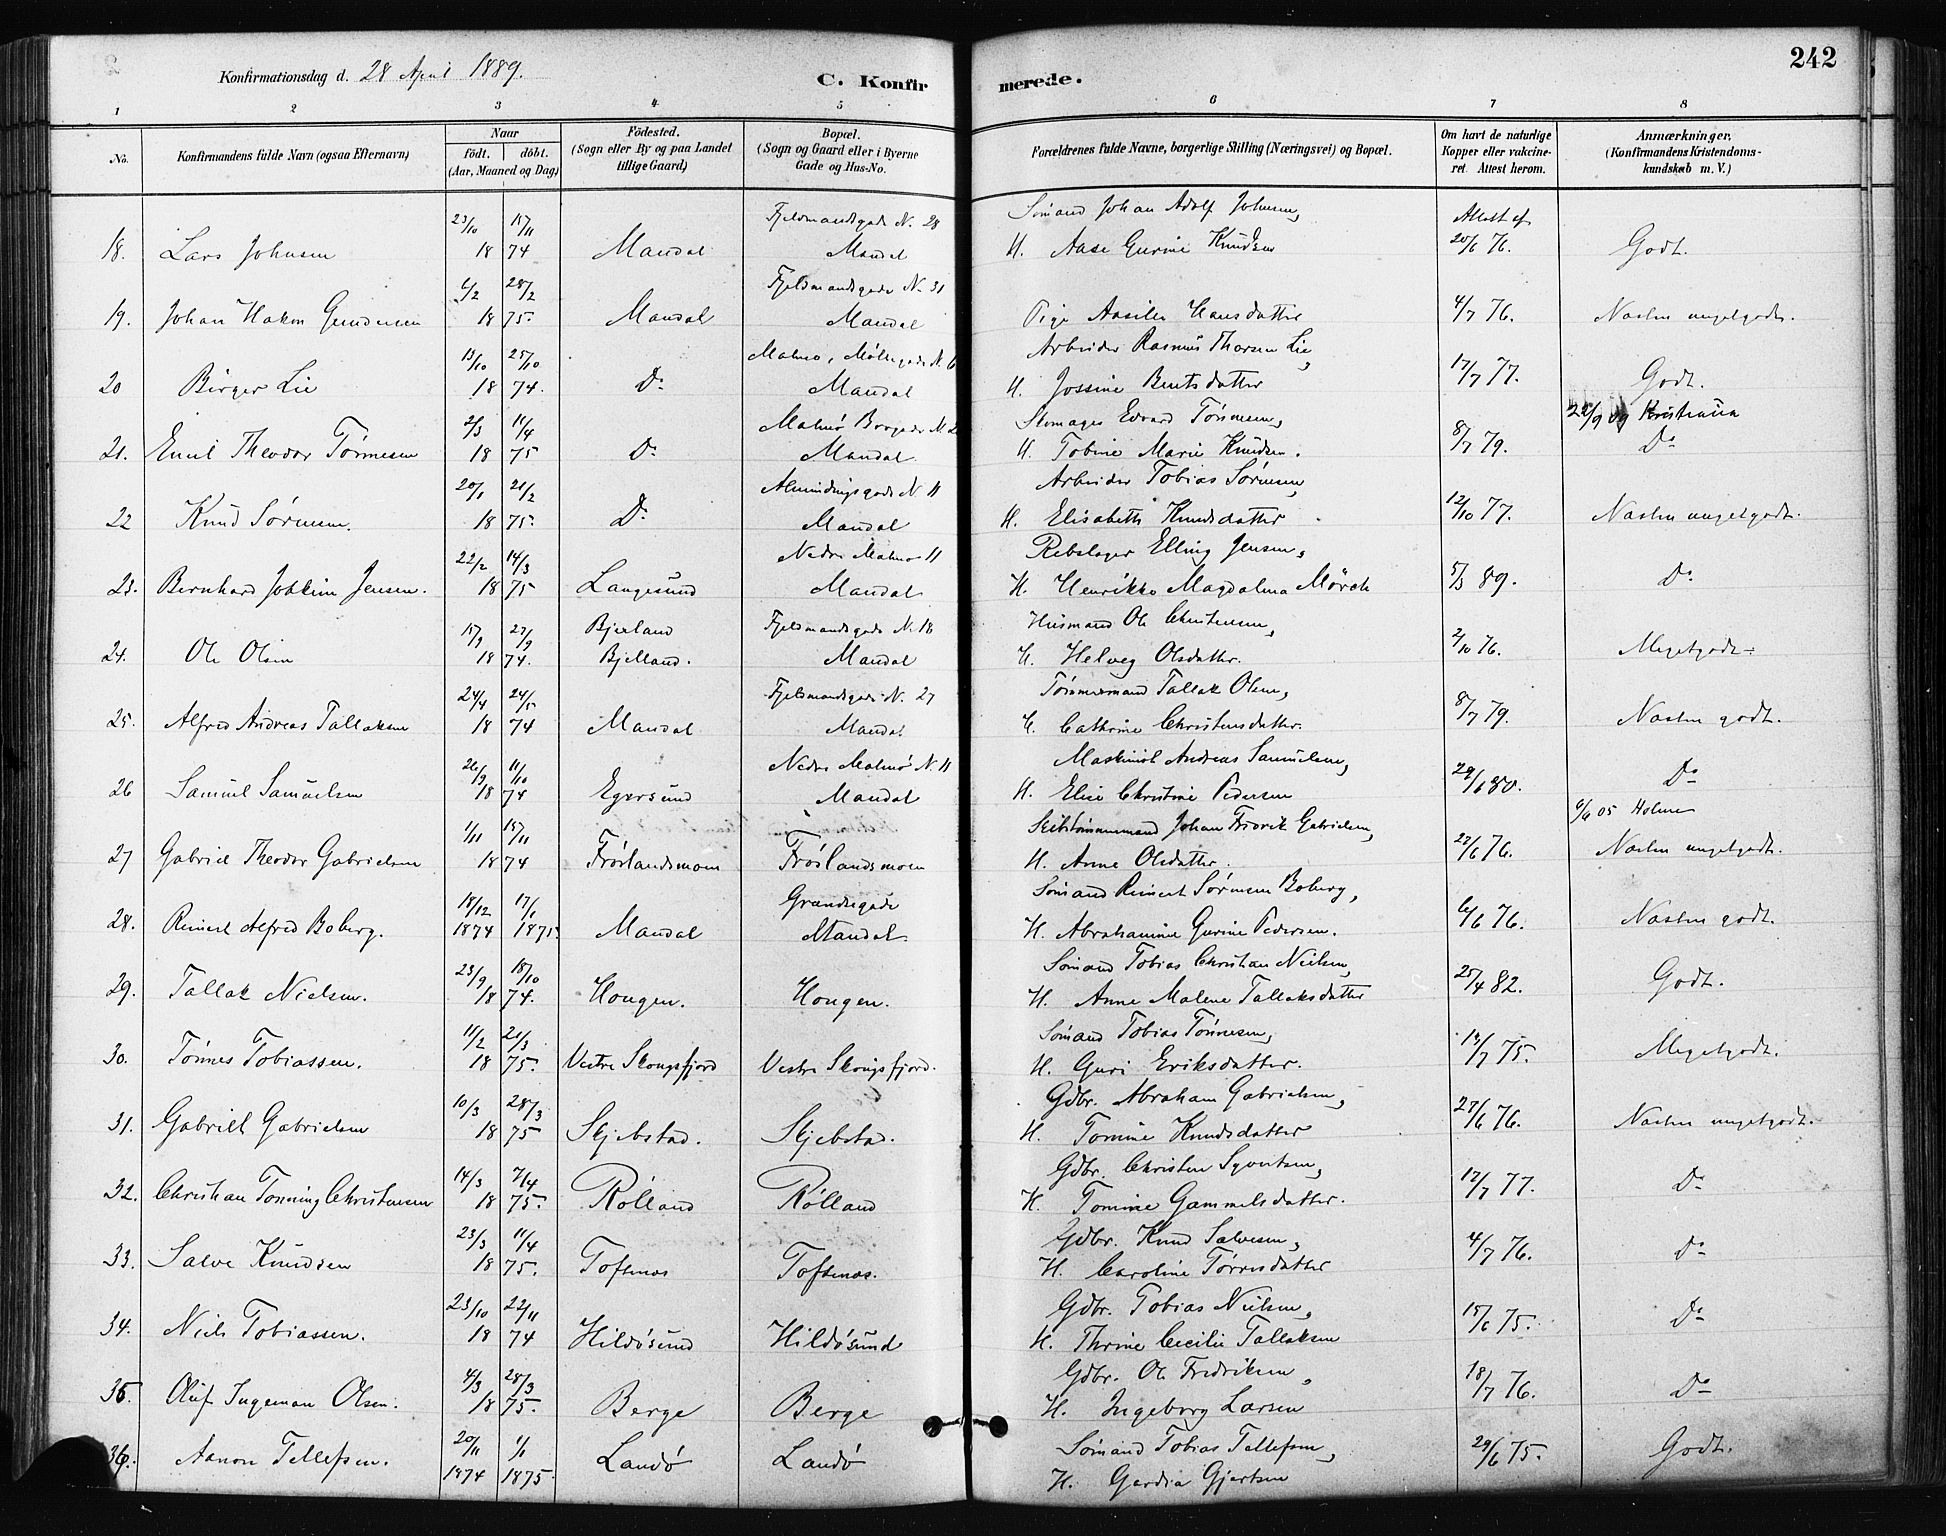 242
Konfirmationsdag d. 28 April 1889.
C. Konfirmerede.
1 2 3 4 5 6 7 8
No.
Konfirmandens fulde Navn (ogsaa Efternavn)
Naar
födt. döbt.
(Aar, Maaned og Dag)
Födested.
(Sogn eller By og paa Landet
tillige Gaard)
Bopæl.
(Sogn og Gaard eller i Byerne
Gade og Hus-No.
Forældrenes fulde Navne, borgerlige Stilling (Næringsvei) og Bopæl.
Om havt de naturlige
Kopper eller vakcine-
ret. Attest herom.
Anmærkninger.
(Konfirmandens Kristendoms-
kundskab m. V.)
23/10 15/11 Fjeldmandsgade N. 28 Sömand Johan Adolf Johnsen, Attest af
18. Lars Johnsen 18 74 Mandal Mandal H. Aase Gurine Knudsen 20/6 76. Godt.
6/2 28/2 Fjeldmandsgade N. 31
19. Johan Hakon Gundersen 18 75. Mandal Mandal Pige Aasille Hansdatter 4/7 76. Næsten megetgodt.
13/10 25/10 Malmö, Möllegade N. 6 Arbeider Rasmus Thorsen Lie,
20 Birger Lie 18 74. Do Mandal H. Jossine Berntsdatter 17/7 77. Godt.
2/3 11/4 Malmö Skomager Edvard Tönnesen, 22/9 09 Kristiania
21. Emil Theodor Tönnesen 18 75 Do Mandal H. Tobine Marie Knudsen. 8/7 79. Do
20/1 21/2 Almindingsgade N 11 Arbeider Tobias Sörensen,
22 Knud Sörensen. 18 75. Do Mandal H. Elisabeth Knudsdatter 12/10 77. Næsten megetgodt.
22/2 14/3 Nedre Malmö 11 Rebslager Elling Jensen,
23. Bernhard Joakim Jensen. 18 75 Langesund Mandal H. Henrikke Magdalena Mörch 5/3 89. Do
15/9 27/9 Bjerland Fjeldmandsgade N. 18 Husmand Ole Christensen,
24. Ole Olsen 18 74. Bjelland. Mandal H. Helveg Olsdatter. 2/10 76. Megetgodt.
24/4 24/5 Fjeldmandsgade N. 27 Tömmermand Tallak Olsen,
25. Alfred Andreas Tallaksen 18 74 Mandal Mandal H. Cathrine Christensdatter. 8/7 79. Næsten godt.
26/9 11/10 Nedre Malmö N. 11 Maskinist Andreas Samuelsen,
26 Samuel Samuelsen 18 74 Egersund Mandal H. Elise Christine Pedersen 29/6 80. Do
1/11 15/11 Skibstömmermand Johan Fredrik Gabrielsen, 6/6 05 Holme
27 Gabriel Theodor Gabrielsen 18 74 Fröslandsmoen Fröslandsmoen H. Anne Olsdatter. 22/6 76. Næsten megetgodt.
18/12 17/1 Grændsegade Sömand Reinert Sörensen Boberg,
28. Reinert Alfred Boberg. 1874 1875. Mandal Mandal. H. Abrahamine Gurine Pedersen. 6/6 76. Næsten godt.
23/9 18/10 Sömand Tobias Christian Nielsen,
29. Tallak Nielsen. 18 74. Hougen. Hougen. H. Anne Malene Tallaksdatter 25/4 82. Godt.
11/2 21/3 Sömand Tobias Tönnesen,
30. Tönnes Tobiassen. 18 75. Vestre Skougsfjord Vestre Skougsfjord. H. Guri Eriksdatter. 13/7 75. Megetgodt.
10/3 28/3 Gdbr. Abraham Gabrielsen,
31. Gabriel Gabrielsen 18 75 Skjebstad. Skjebstad. H. Tomine Knudsdatter 27/6 76. Næsten megetgodt.
14/3 7/4 Gdbr. Christen Syvertsen,
32. Christian Tonning Christensen 18 75. Rölland Rölland H. Tomine Gammelsdatter. 12/7 77. Do
23/3 11/4 Gdbr. Knud Salvesen,
33. Salve Knudsen 18 75. Toftenes Toftenes. H. Caroline Törresdatter 4/7 76. Do
23/10 22/11 Gdbr. Tobias Nielsen,
34. Niels Tobiassen. 18 74 Hildösund Hildösund H. Thrine Cecilie Tallaksen 15/6 75. Do
4/3 28/3 Gdbr. Ole Fredriksen,
35. Oluf Ingeman Olsen. 18 75. Berge Berge H. Ingeborg Larsen 18/7 76. Do
20/11 1/1 Sömand Tobias Tellefsen,
36. Aanon Tellefsen. 1874 1875. Landö Landö H. Gjertsen 29/6 75. Godt.